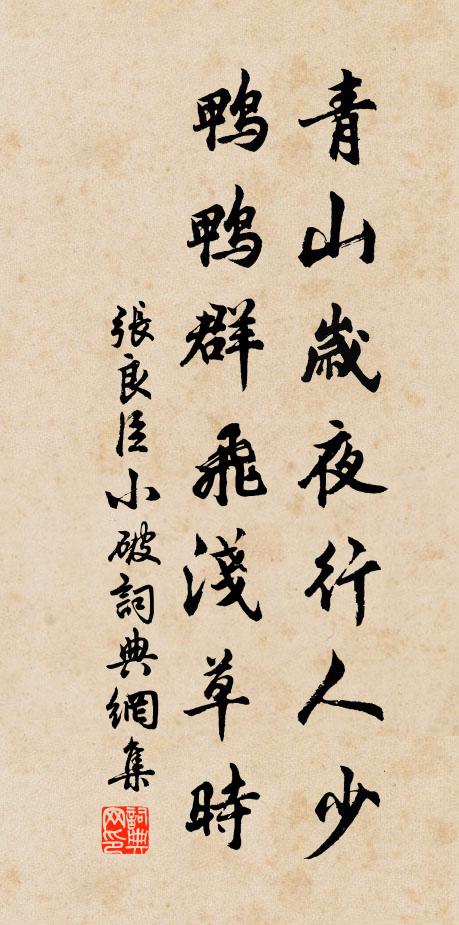 青山歲夜行人少
鴨鴨群飛淺草時
張良臣小破詞典網集
詞典網印